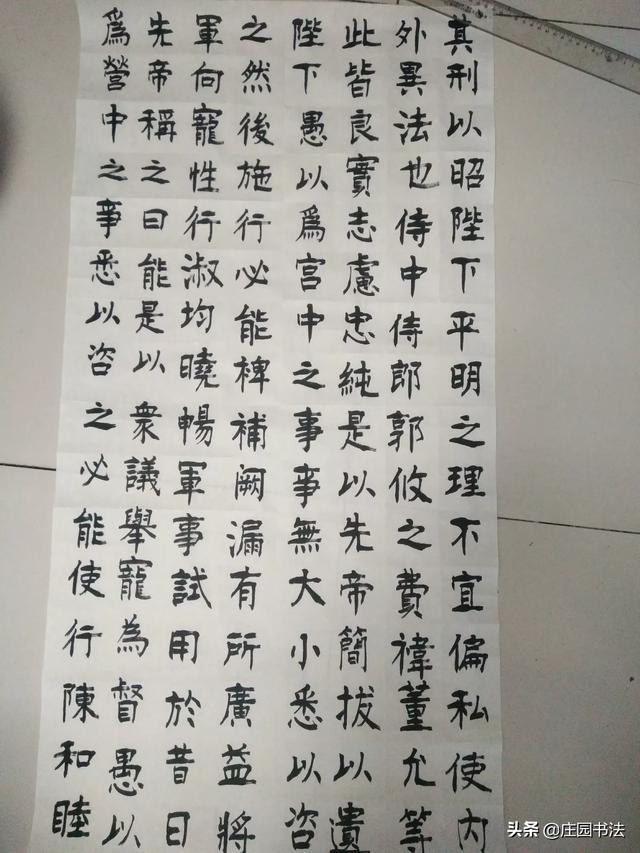 其刑以昭陛下平明之理不宜偏私使内
外異法也侍中侍郎郭攸之費禕董允等
此皆良實志慮忠純是以先帝簡拔以遺
陛下愚以爲宮中之事事無大小悉以咨
之然後施行必能裨補闕漏有所廣益將
軍向寵性行淑均曉暢軍事試用於昔日
先帝稱之曰能是以衆議舉寵為督愚以
爲營中之事悉以咨之必能使行陳和睦
头条 @庄园书法